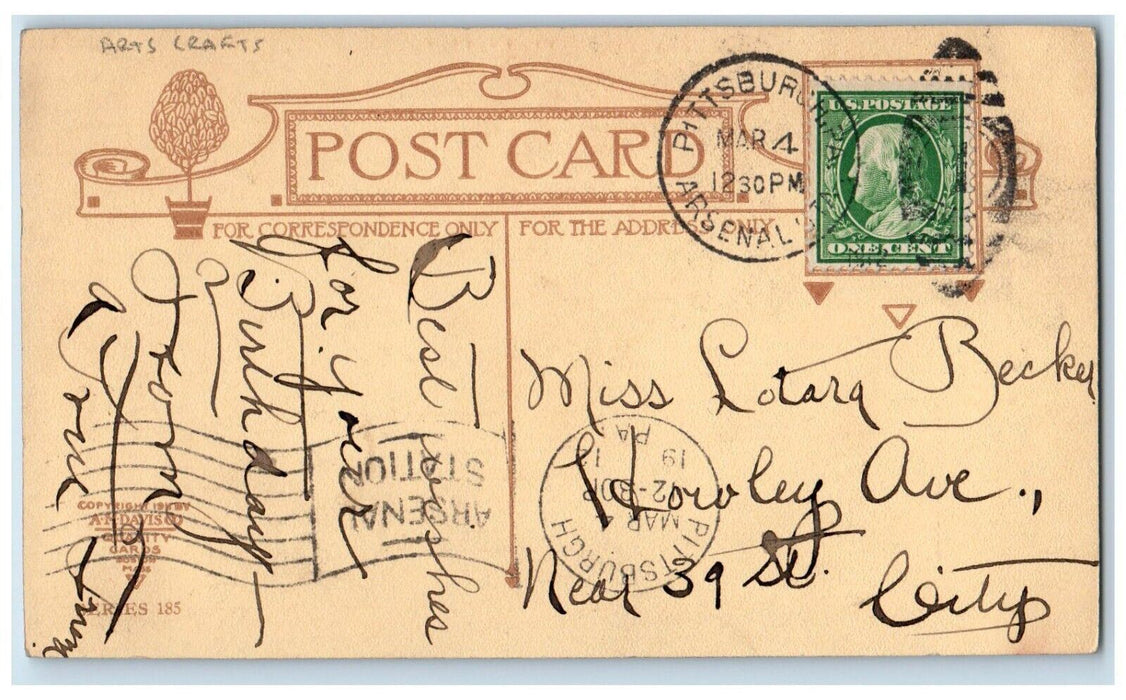 ARTS CRAFTS
POST CARD
FOR CORRESPONDENCE ONLY
FOR THE ADDRESS ONLY
PITTSBURGH, PA.
MAR 4
12 30 PM
ARSENAL
U.S. POSTAGE
ONE CENT
Best wishes
for your
Birthday
from
a True
Miss Lotara Becker
Howley Ave.,
Near 39 St.
City
PITTSBURGH
MAR 4
2-30P
19
PA
ARSENAL
STATION
COPYRIGHT 1911 BY
A.M. DAVIS CO
QUALITY
CARDS
BOSTON
MASS
SERIES 185